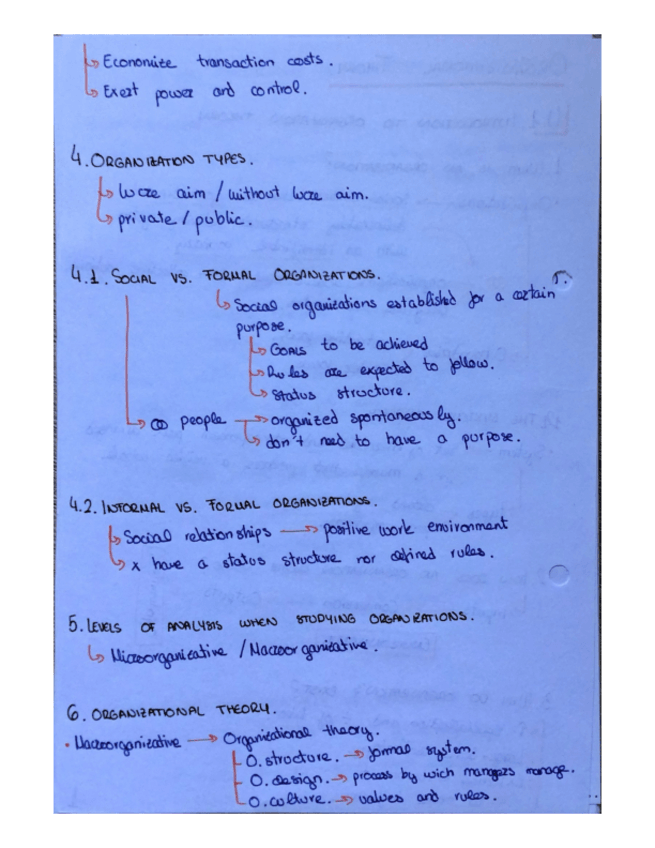 ↳ Economize transaction costs.
↳ Exert power and control.
4. ORGANIZATION TYPES.
↳ lucre aim / without lucre aim.
↳ private / public.
4.1. SOCIAL VS. FORMAL ORGANIZATIONS.
↳ Social organizations established for a certain
purpose.
↳ GOALS to be achieved
↳ Rules are expected to follow.
↳ Status structure.
↳ ∞ people → organized spontaneously.
↳ don't need to have a purpose.
4.2. INFORMAL VS. FORMAL ORGANIZATIONS.
↳ Social relationships → positive work environment
↳ x have a status structure nor defined rules.
5. LEVELS OF ANALYSIS WHEN STUDYING ORGANIZATIONS.
↳ Microorganizative / Macroorganizative.
6. ORGANIZATIONAL THEORY.
• Macroorganizative → Organizational theory.
O. structure. → formal system.
O. design. → process by wich managers manage.
O. culture. → values and rules.